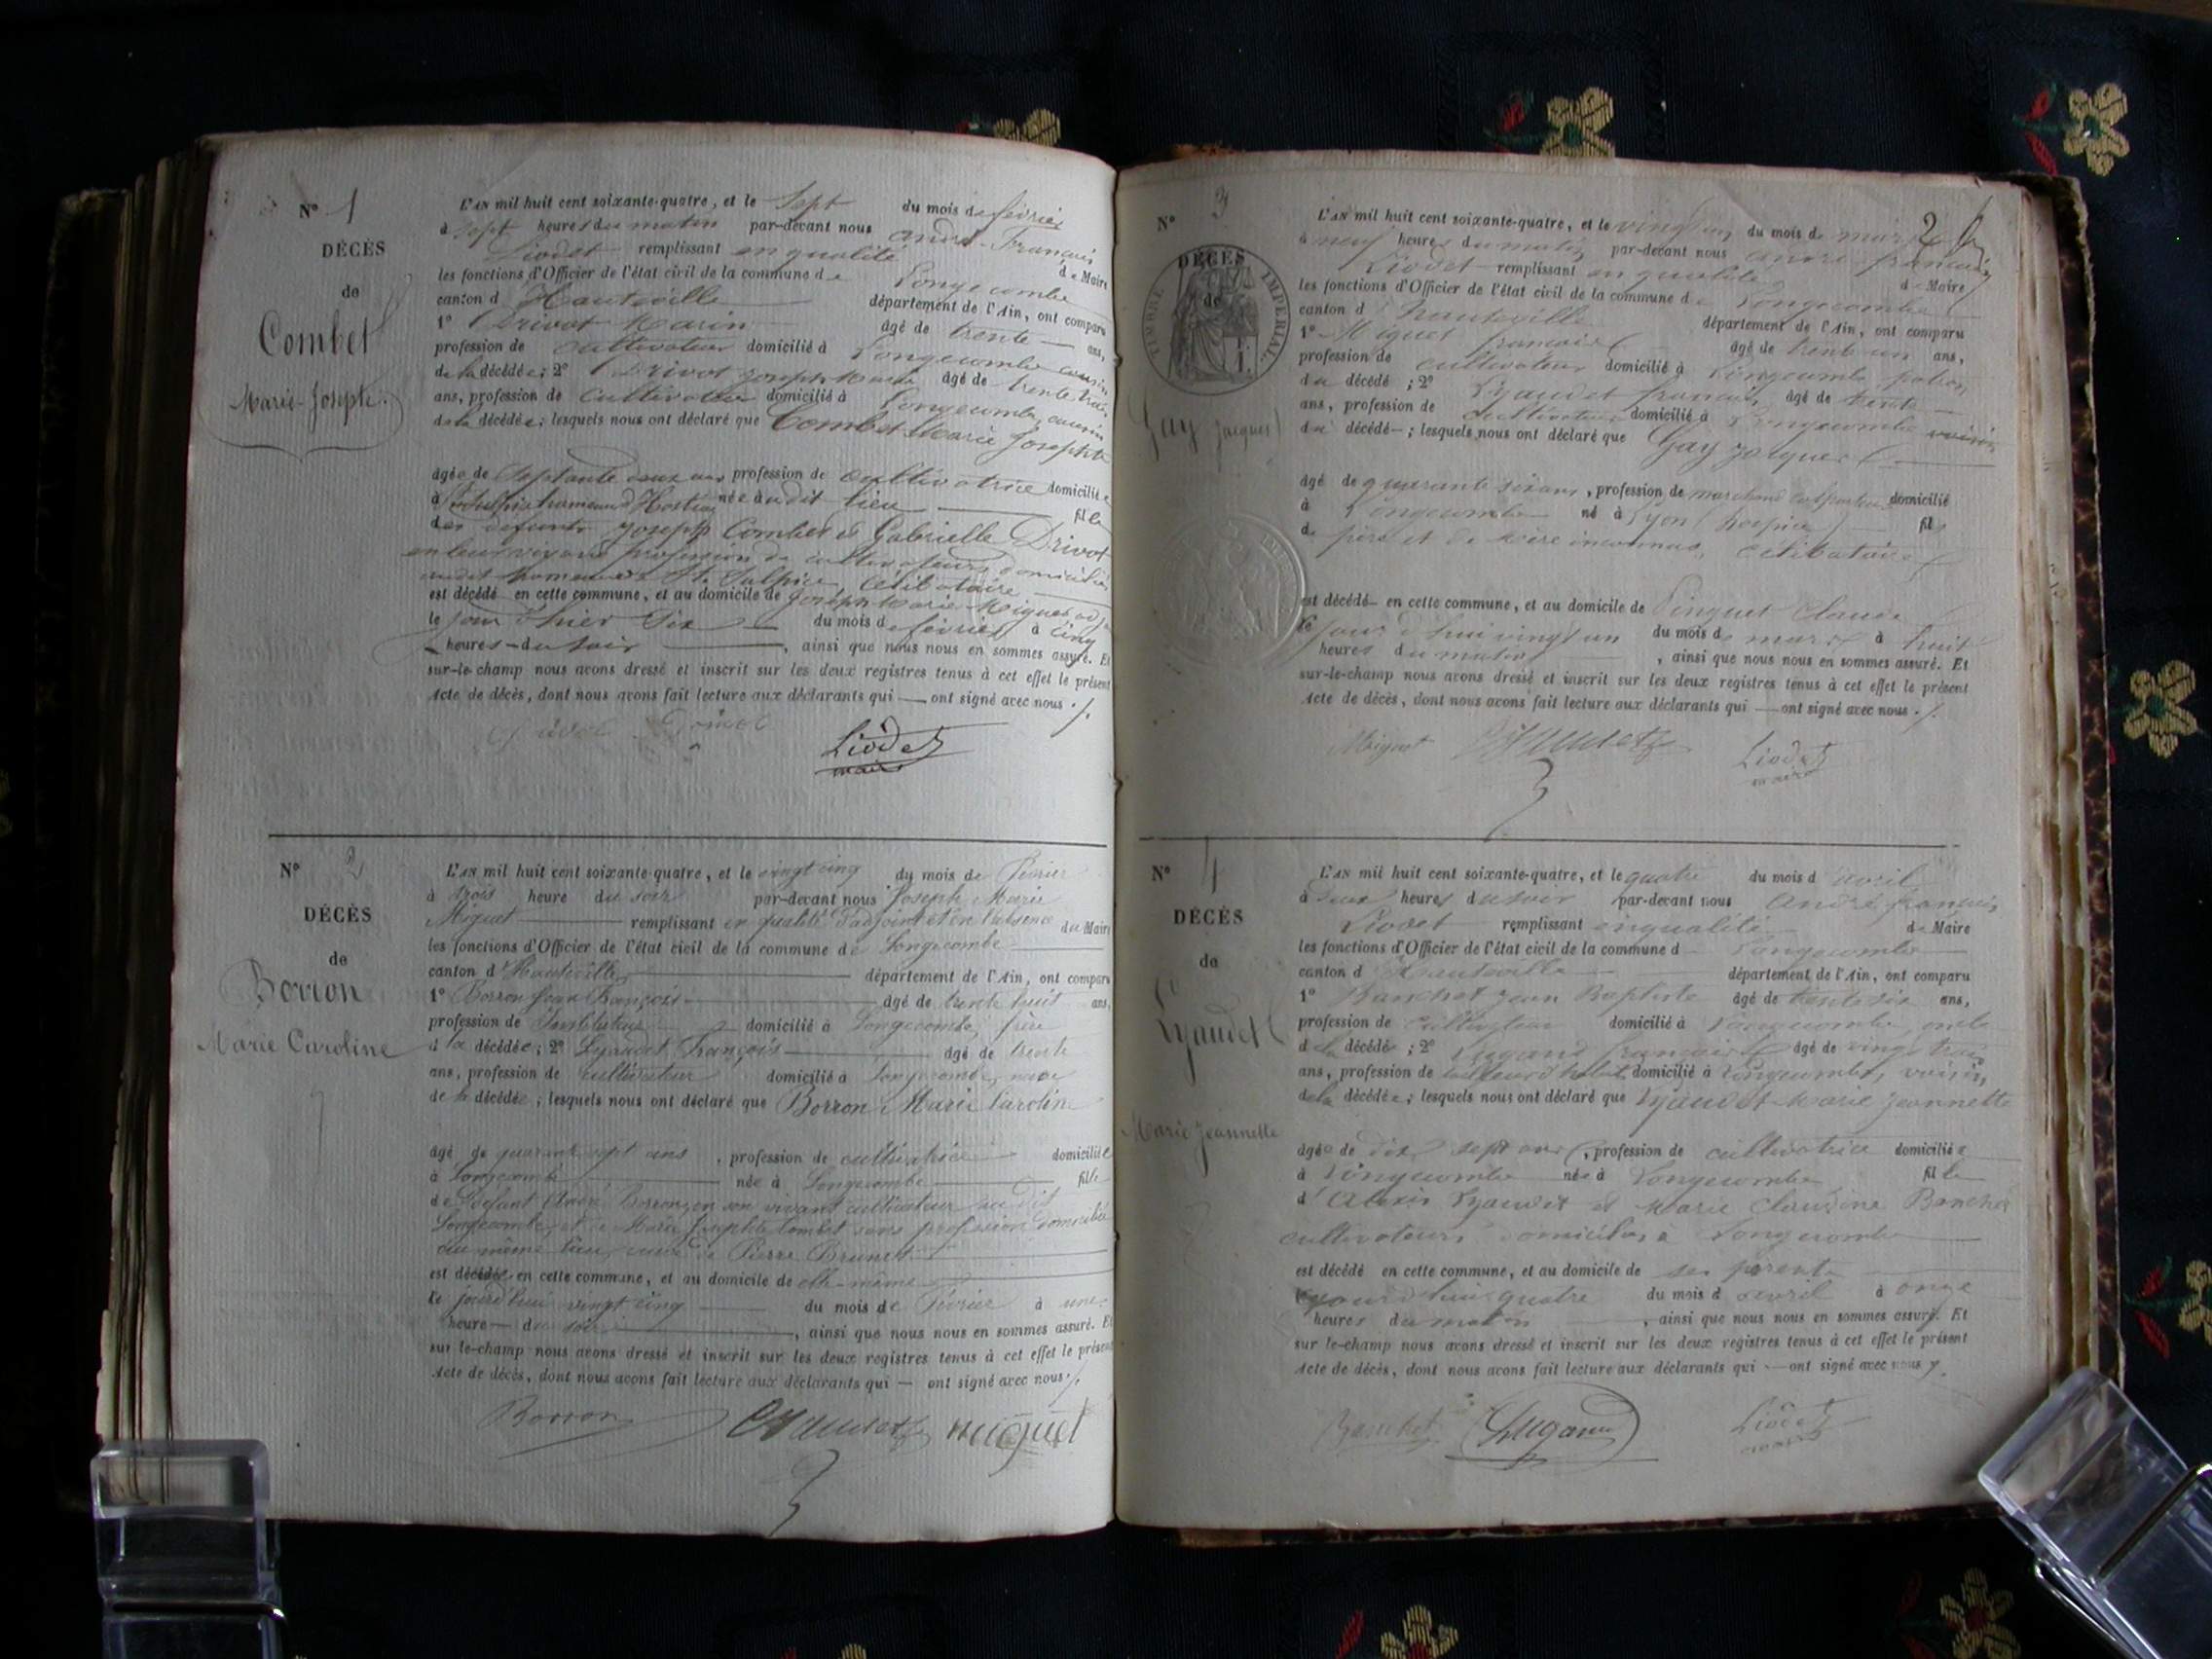 N° 1
DÉCÈS
de
Combet
Marie-Josephte.
L'AN mil huit cent soixante-quatre, et le Sept du mois de février
à sept heures du matin par-devant nous André-François
Liodet remplissant en qualité de Maire
les fonctions d'Officier de l'état civil de la commune de Longecombe
canton d Hauteville département de l'Ain, ont comparu
1° Drivot Marin âgé de trente ans,
profession de cultivateur domicilié à Longecombe cousin
de la décédée; 2° Drivot Joseph Marie âgé de trente trois
ans, profession de cultivateur domicilié à Longecombe, cousin
de la décédée; lesquels nous ont déclaré que Combet Marie Josephte
âgée de Septante deux ans profession de cultivatrice domiciliée
à hameau d'Hostiaz née audit lieu fille
des defunts Joseph Combet et Gabrielle Drivot
en leur vivant profession de cultivateurs domiciliés
audit hameau St. Sulpice, célibataire
est décédé en cette commune, et au domicile de Joseph Marie Miguet adj
le jour d'hier Six du mois de février à cinq
heures du soir, ainsi que nous nous en sommes assuré. Et
sur-le-champ nous avons dressé et inscrit sur les deux registres tenus à cet effet le présent
Acte de décès, dont nous avons fait lecture aux déclarants qui — ont signé avec nous ./.
Liodet
maire
N° 2
DÉCÈS
de
Borron
Marie Caroline
L'AN mil huit cent soixante-quatre, et le vingt cinq du mois de Février
à trois heure du soir par-devant nous Joseph Marie
Miguet remplissant en qualité d'adjoint et en l'absence du Maire
les fonctions d'Officier de l'état civil de la commune de Longecombe
canton d'Hauteville département de l'Ain, ont comparu
1° Borron Jean François âgé de trente huit ans,
profession de Instituteur domicilié à Longecombe, frère
d la décédée; 2° Lyaudet François âgé de trente
ans, profession de cultivateur domicilié à Longecombe,
de la décédée; lesquels nous ont déclaré que Borron Marie Caroline
âgé de quarante sept ans, profession de cultivatrice domiciliée
à Longecombe née à Longecombe fille
de défunt André Borron, en son vivant cultivateur au dit
Longecombe, et de Marie Josephte Combet sans profession domiciliée
au même lieu, veuve de Pierre Brunet
est décédée en cette commune, et au domicile de elle-même
le jourd'hui vingt cinq du mois de Février à une
heure du soir, ainsi que nous nous en sommes assuré. Et
sur-le-champ nous avons dressé et inscrit sur les deux registres tenus à cet effet le présent
Acte de décès, dont nous avons fait lecture aux déclarants qui — ont signé avec nous ./.
Borron Lyaudet Miguet
2
N° 3
DÉCÈS
de
TIMBRE IMPÉRIAL
Gay Jacques
L'AN mil huit cent soixante-quatre, et le vingt un du mois de mars
à neuf heures du matin par-devant nous André-françois
Liodet remplissant en qualité de Maire
les fonctions d'Officier de l'état civil de la commune de Longecombe
canton d'hauteville département de l'Ain, ont comparu
1° Miguet françois âgé de trente un ans,
profession de cultivateur domicilié à Longecombe patron
du décédé; 2° Lyaudet françois, âgé de trente
ans, profession de cultivateur domicilié à Longecombe voisin
du décédé; lesquels nous ont déclaré que Gay Jacques
âgé de quarante six ans, profession de marchand colporteur domicilié
à Longecombe né à Lyon (hospice) fils
de père et de mère inconnus, célibataire
est décédé en cette commune, et au domicile de Pinguet Claude
le jour d'hui vingt un du mois de mars à huit
heures du matin, ainsi que nous nous en sommes assuré. Et
sur-le-champ nous avons dressé et inscrit sur les deux registres tenus à cet effet le présent
Acte de décès, dont nous avons fait lecture aux déclarants qui — ont signé avec nous ./.
Miguet Lyaudet Liodet
maire
N° 4
DÉCÈS
de
Lyaudet
Marie Jeannette
L'AN mil huit cent soixante-quatre, et le quatre du mois d'avril
à deux heures du soir par-devant nous André françois
Liodet remplissant en qualité de Maire
les fonctions d'Officier de l'état civil de la commune d Longecombe
canton d'Hauteville département de l'Ain, ont comparu
1° Banchet Jean Baptiste âgé de trente six ans,
profession de cultivateur domicilié à Longecombe, oncle
de la décédé; 2° Lugand françois âgé de vingt trois
ans, profession de tailleur d'habits domicilié à Longecombe, voisin,
de la décédée; lesquels nous ont déclaré que Lyaudet Marie Jeannette
âgée de dix sept ans, profession de cultivatrice domiciliée
à Longecombe née à Longecombe fille
d'Alexis Lyaudet et Marie Claudine Banchet
cultivateurs domiciliés à Longecombe
est décédé en cette commune, et au domicile de ses parents
le jourd'hui quatre du mois d avril à onze
heures du matin, ainsi que nous nous en sommes assuré. Et
sur-le-champ nous avons dressé et inscrit sur les deux registres tenus à cet effet le présent
Acte de décès, dont nous avons fait lecture aux déclarants qui — ont signé avec nous ./.
Banchet Lugand Liodet
maire